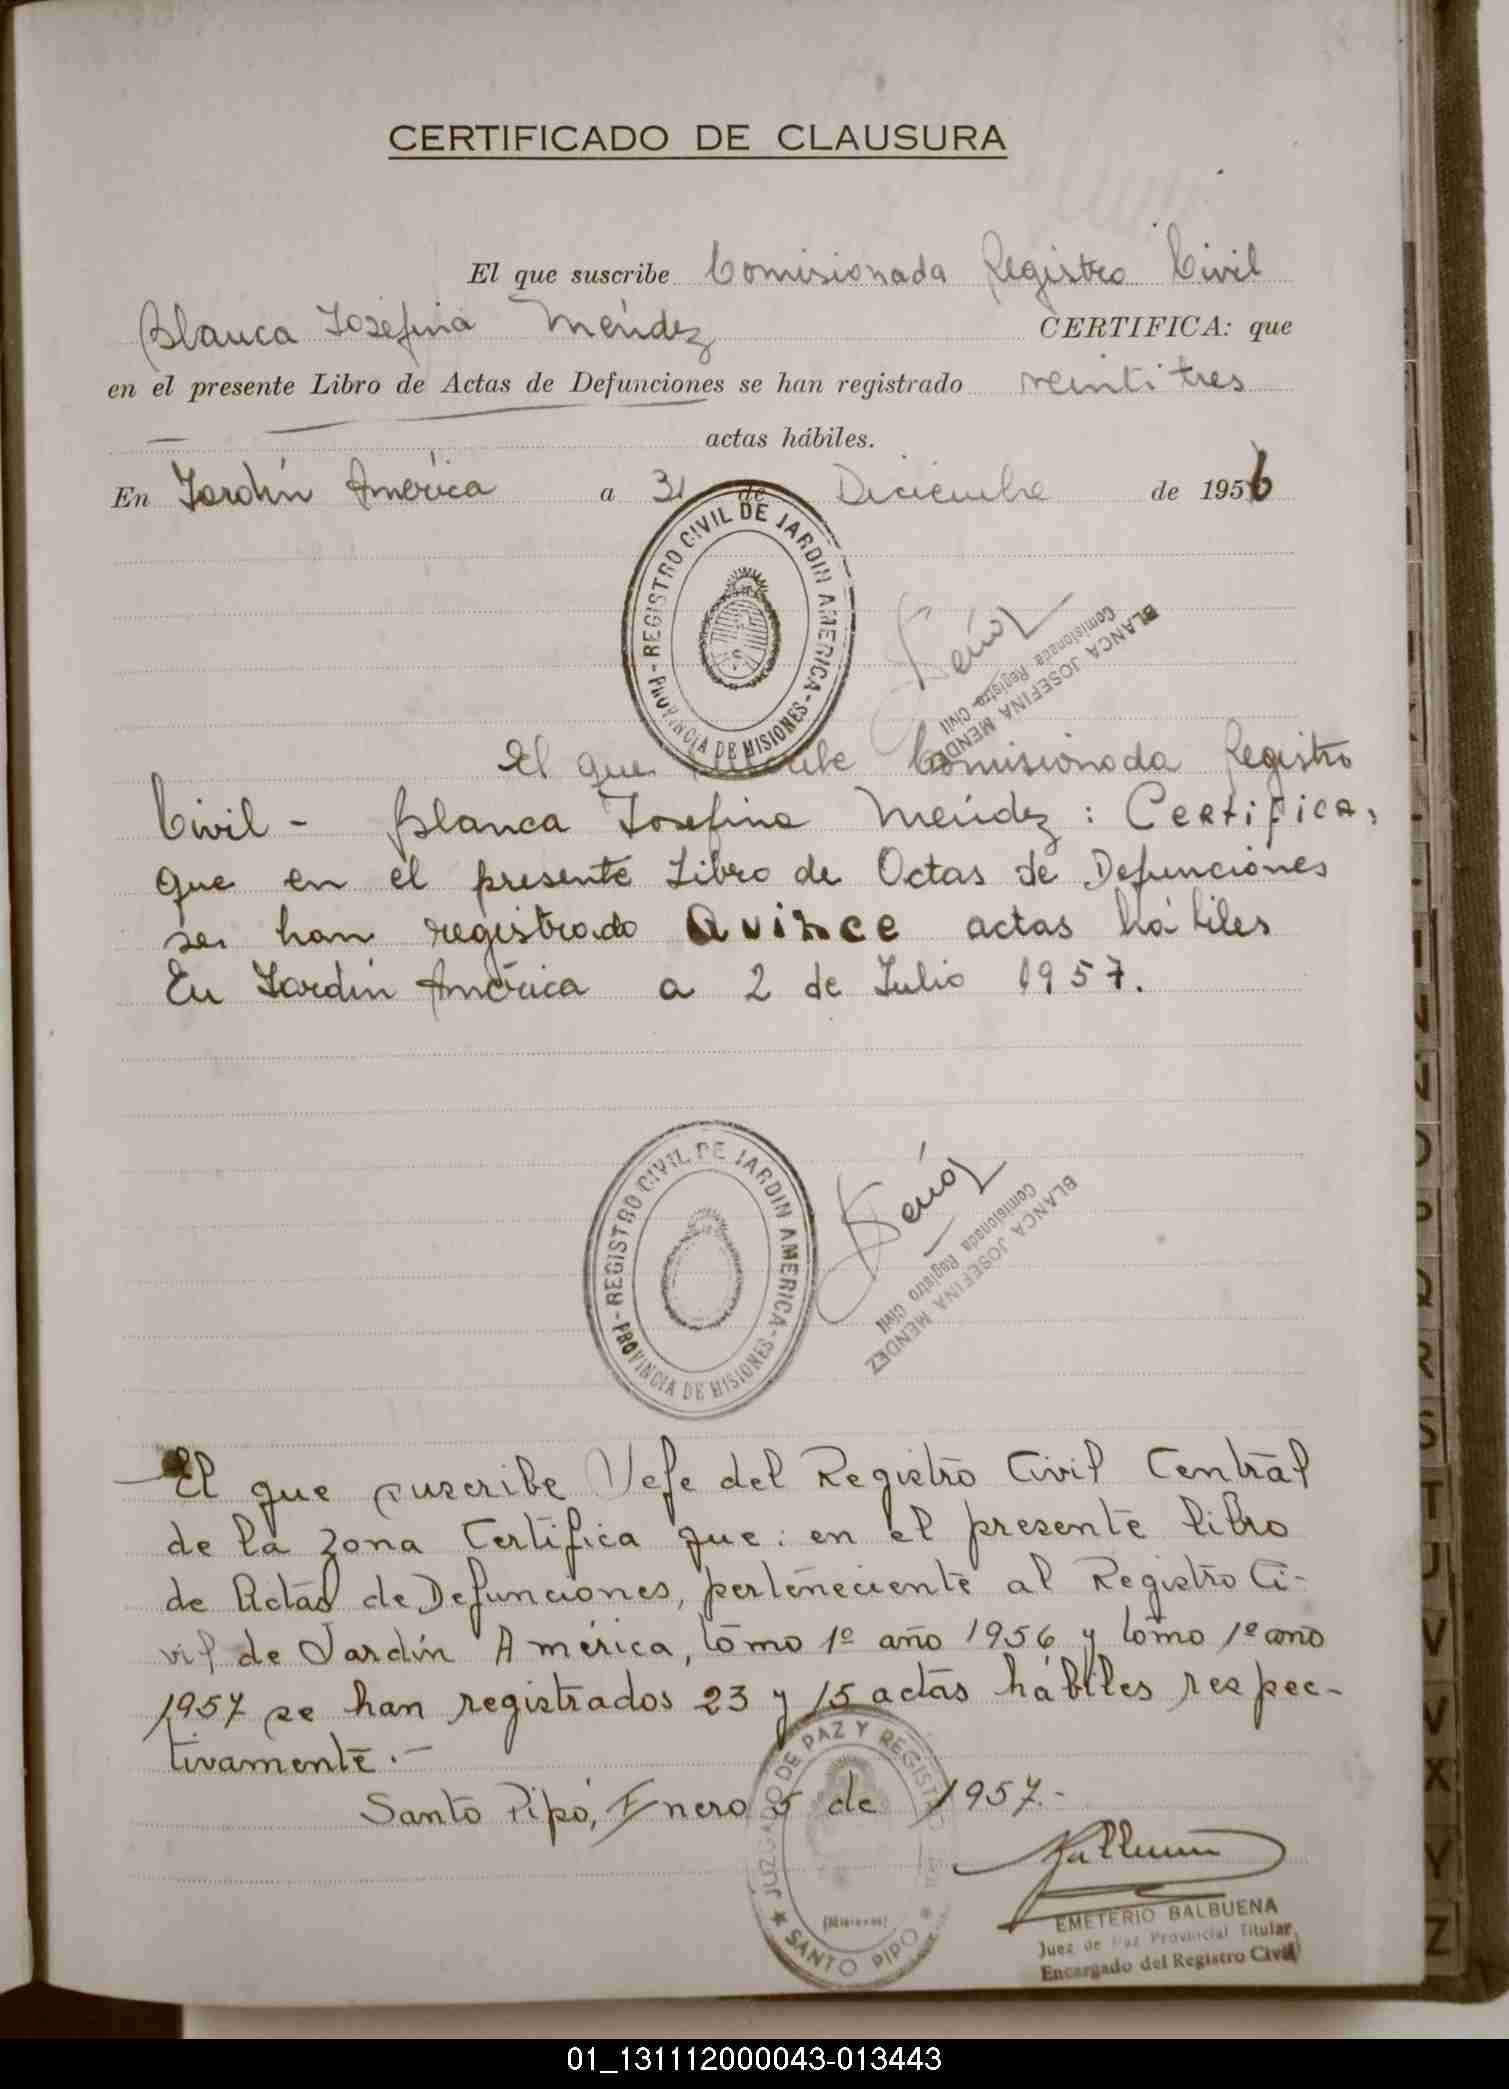 CERTIFICADO DE CLAUSURA
El que suscribe Comisionada Registro Civil
Blanca Josefina Méndez CERTIFICA: que
en el presente Libro de Actas de Defunciones se han registrado veinti tres
actas hábiles.
En Jardín América a 31 de Diciembre de 1956
- REGISTRO CIVIL DE JARDIN AMERICA -
PROVINCIA DE MISIONES
BLANCA JOSEFINA MENDEZ
Comisionada Registro Civil
El que suscribe Comisionada Registro
Civil - Blanca Josefina Méndez : Certifica,
que en el presente Libro de Actas de Defunciones
se han registrado Quince actas hábiles
En Jardín América a 2 de Julio 1957.
- REGISTRO CIVIL DE JARDIN AMERICA -
PROVINCIA DE MISIONES
BLANCA JOSEFINA MENDEZ
Comisionada Registro Civil
El que suscribe Jefe del Registro Civil Central
de la zona Certifica que: en el presente libro
de Actas de Defunciones, perteneciente al Registro Ci-
vil de Jardín América, tomo 1º año 1956 y tomo 1º año
1957 se han registrados 23 y 15 actas hábiles respec-
tivamente.-
Santo Pipó, Enero 5 de 1957.-
JUZGADO DE PAZ Y REGISTRO
(Misiones)
★ SANTO PIPO ★
EMETERIO BALBUENA
Juez de Paz Provincial Titular
Encargado del Registro Civil
S
T
U
V
V
X
Y
Z
01_131112000043-013443